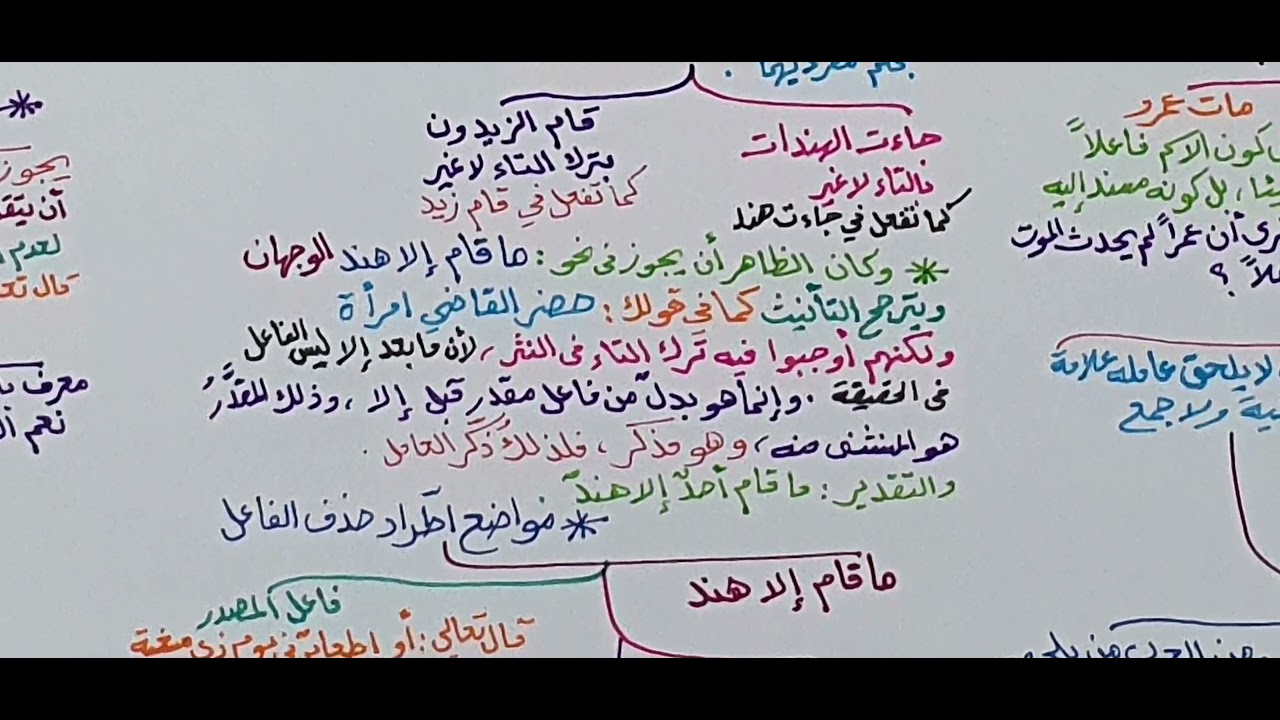 مات عمرو
كون الاسم فاعلاً
بل كونه مسند إليه
أن عمراً لم يحدث الموت
؟
لا يلحق عامله علامة
ولا جمع
جاءت الهندات
بالتاء لا غير
كما تفعل في جاءت هند
قام الزيدون
بترك التاء لا غير
كما تفعل في قام زيد
* وكان الظاهر أن يجوز في نحو: ما قام إلا هند الوجهان
ويترجح التأنيث كما في قولك: حضر القاضي امرأة
ولكنهم أوجبوا فيه ترك التاء في النثر، لأن ما بعد إلا ليس الفاعل
في الحقيقة. وإنما هو بدل من فاعل مقدر قبل إلا، وذلك المقدَّرُ
هو المستثنى منه، وهو مذكر، فلذلك ذُكِّر العامل.
والتقدير: ما قام أحدٌ إلا هندٌ
* مواضع اطّراد حذف الفاعل
ما قام إلا هند
فاعل المصدر
قال تعالى: أو إطعام في يوم ذي مسغبة
*
يجوز
أن يتقد
لعدم
قال تعا
معرف بـ
نعم